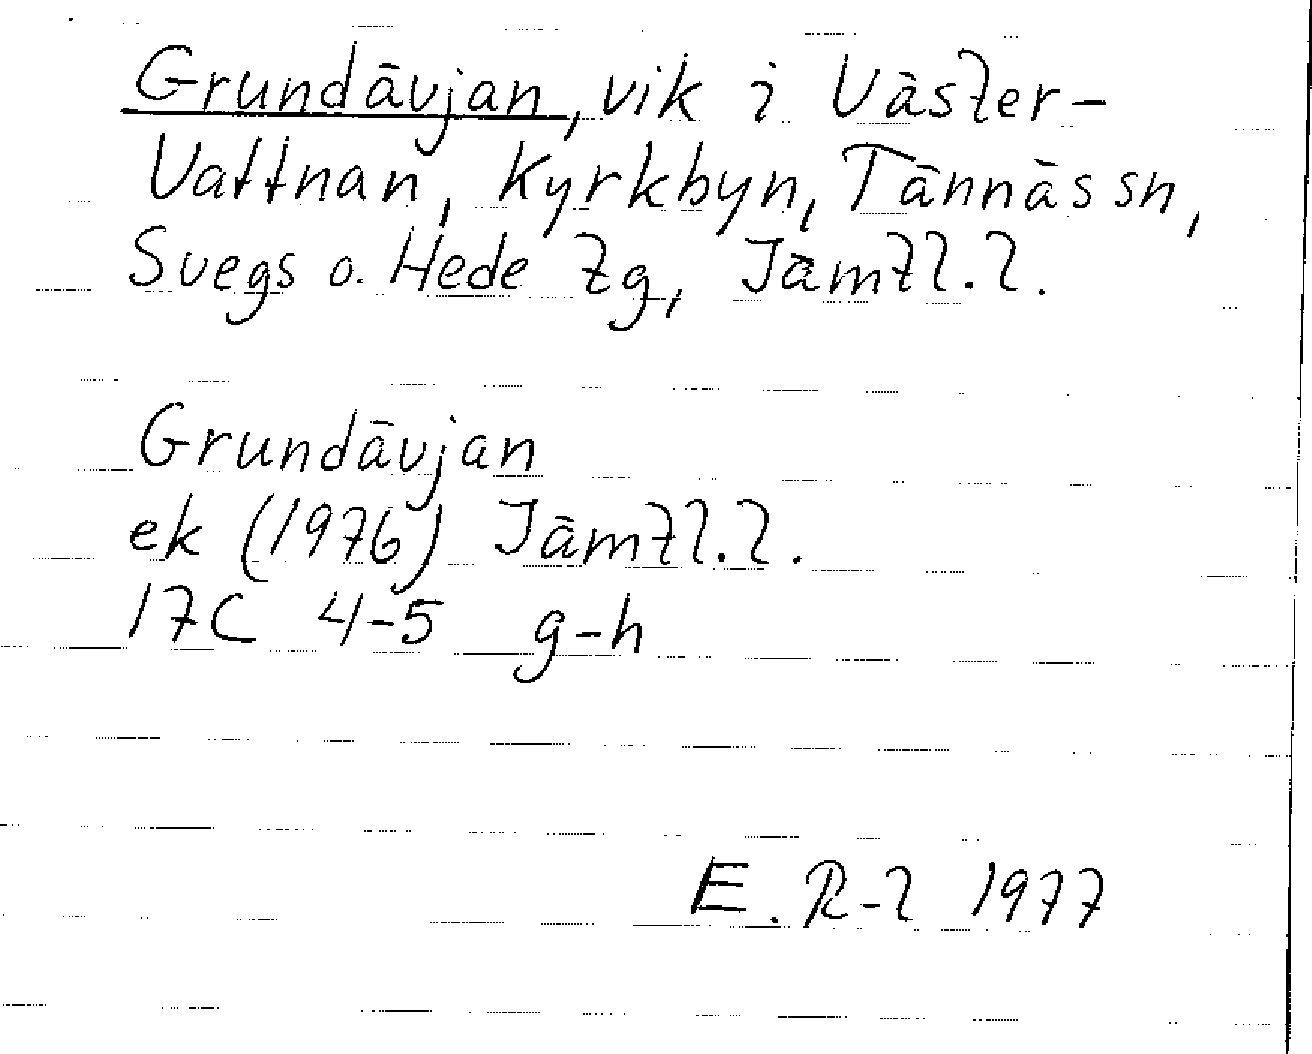 Grundävjan, vik i Väster-
Vattnan, Kyrkbyn, Tännäs sn,
Svegs o. Hede tg, Jämtl. l.
Grundävjan
ek (1976) Jämtl. l.
17C 4-5 g-h
E. R-l 1977